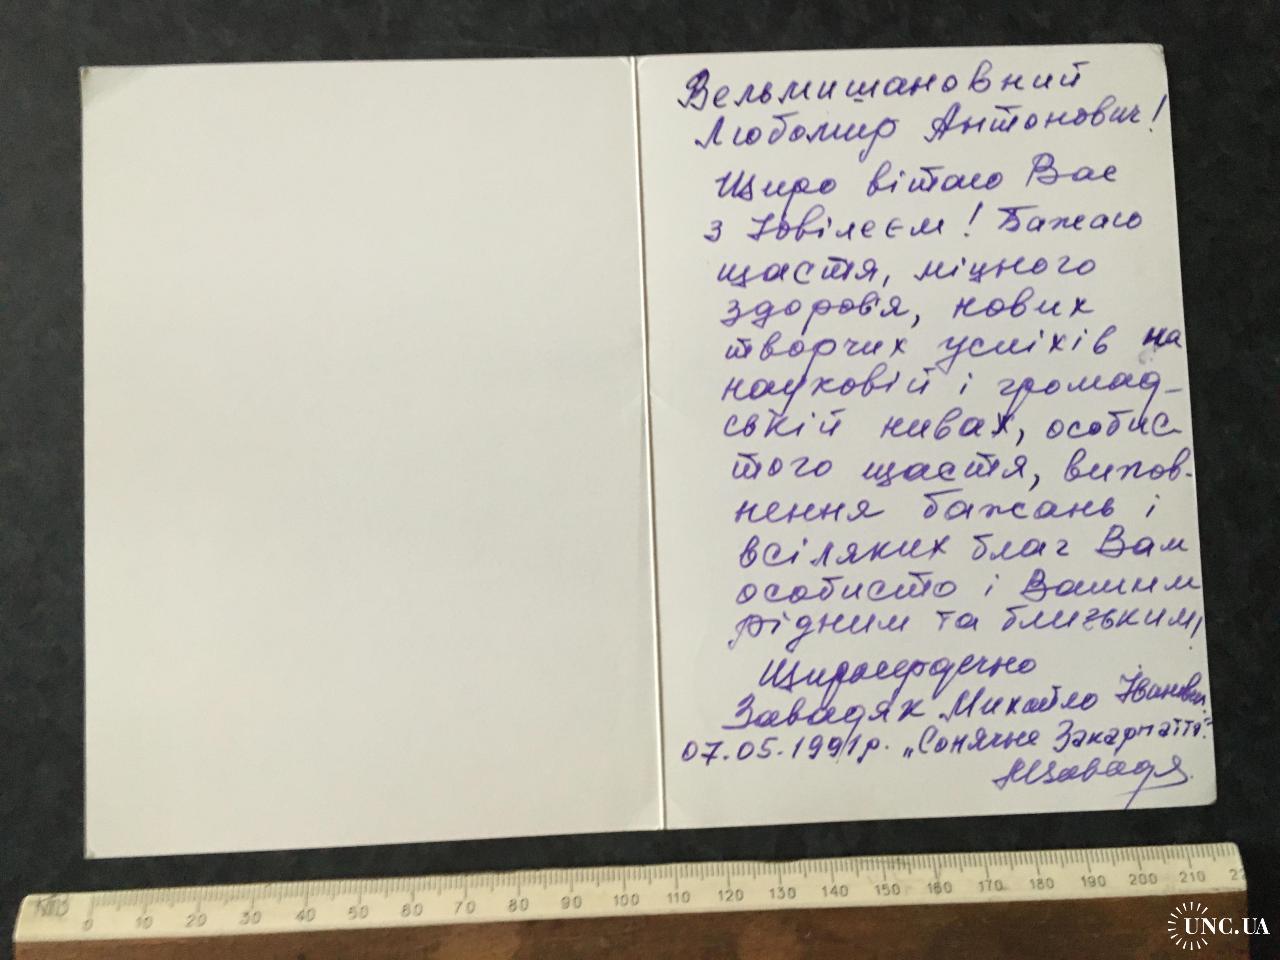 Вельмишановний
Любомир Антонович!
Щиро вітаю Вас
з Ювілеєм! Бажаю
щастя, міцного
здоров'я, нових
творчих успіхів на
науковій і громад-
ській нивах, особис-
того щастя, випов-
нення бажань і
всіляких благ Вам
особисто і Вашим
рідним та близьким,
Щиросердечно
Завадяк Михайло Іванович
07.05.1991р. „Сонячне Закарпаття"
МЗавадя
0 10 20 30 40 50 60 70 80 90 100 110 120 130 140 150 160 170 180 190 200 210
UNC.UA